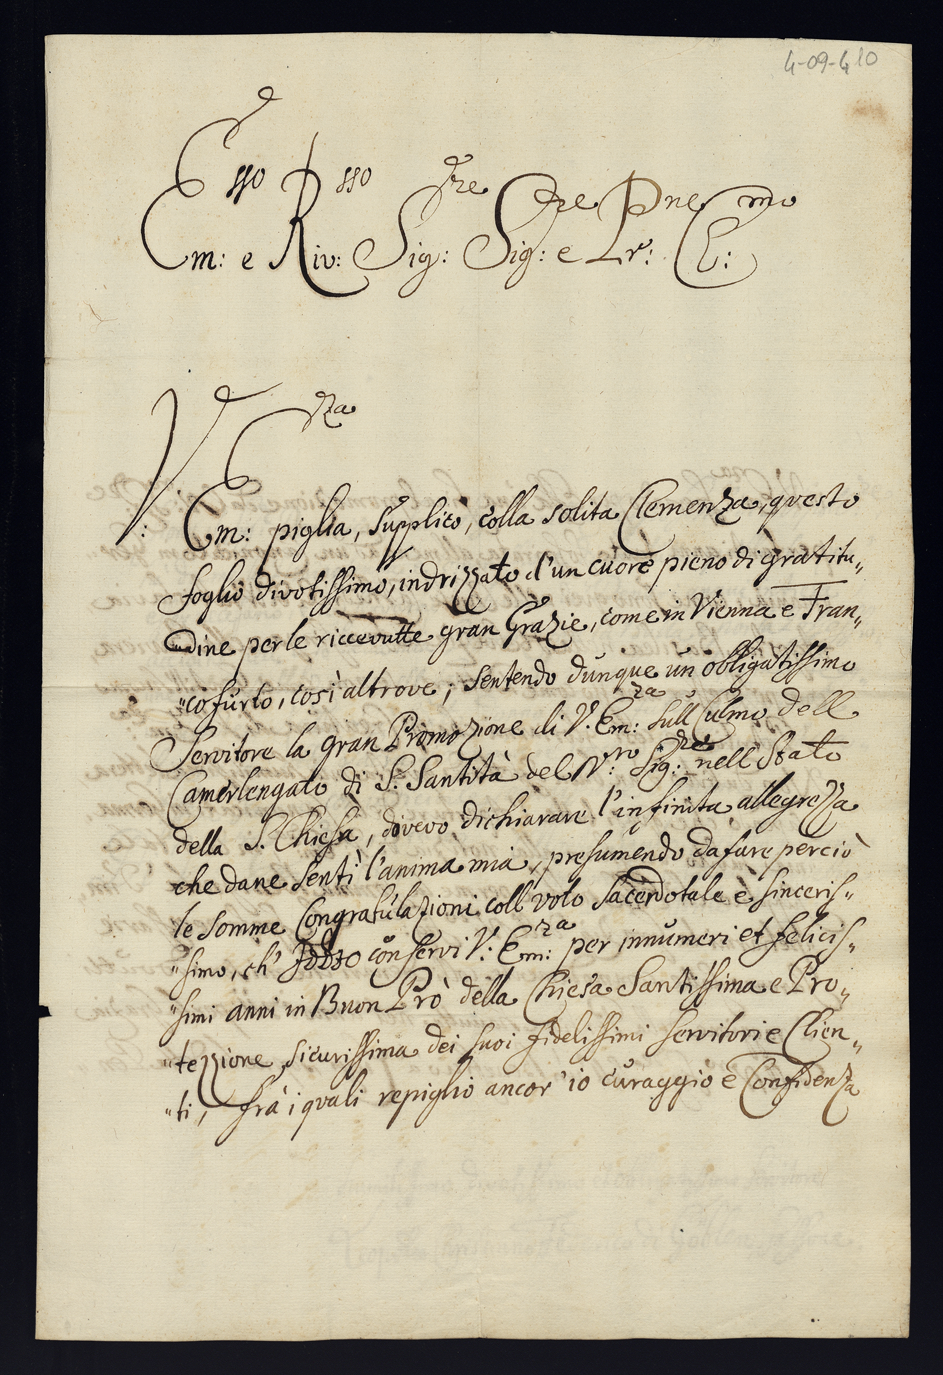 4-09-410
Em:sso e Riv:sso Sig:re Sig:re e Pr:ne C:mo
V:
Em:za piglia, supplico, colla solita Clemenza, questo
foglio divotissimo, indrizzato d'un cuore pieno di gratitu„
dine per le riccevutte gran Grazie, come in Vienna e Fran„
„cofurto, così altrove; sentendo dunque un obligatissimo
Servitore la gran Promozione di V: Em:za sull Culmo dell
Camerlengato di S: Santità del N:ro Sig:re nell Stato
della S. Chiesa, dovevo dichiarare l'infinita allegrezza
che dane sentì l'anima mia, presumendo da fare perciò
le somme Congratulazioni coll voto Sacerdotale è sinceris„
„simo, ch' Iddio conservi V: Em:za per innumeri et felicis„
„simi anni in Buon Prò della Chiesa Santissima e Pro„
„tezzione sicurissima dei suoi fidelissimi servitori e Clien„
„ti, frà i quali repiglio ancor'io curaggio è Confidenza